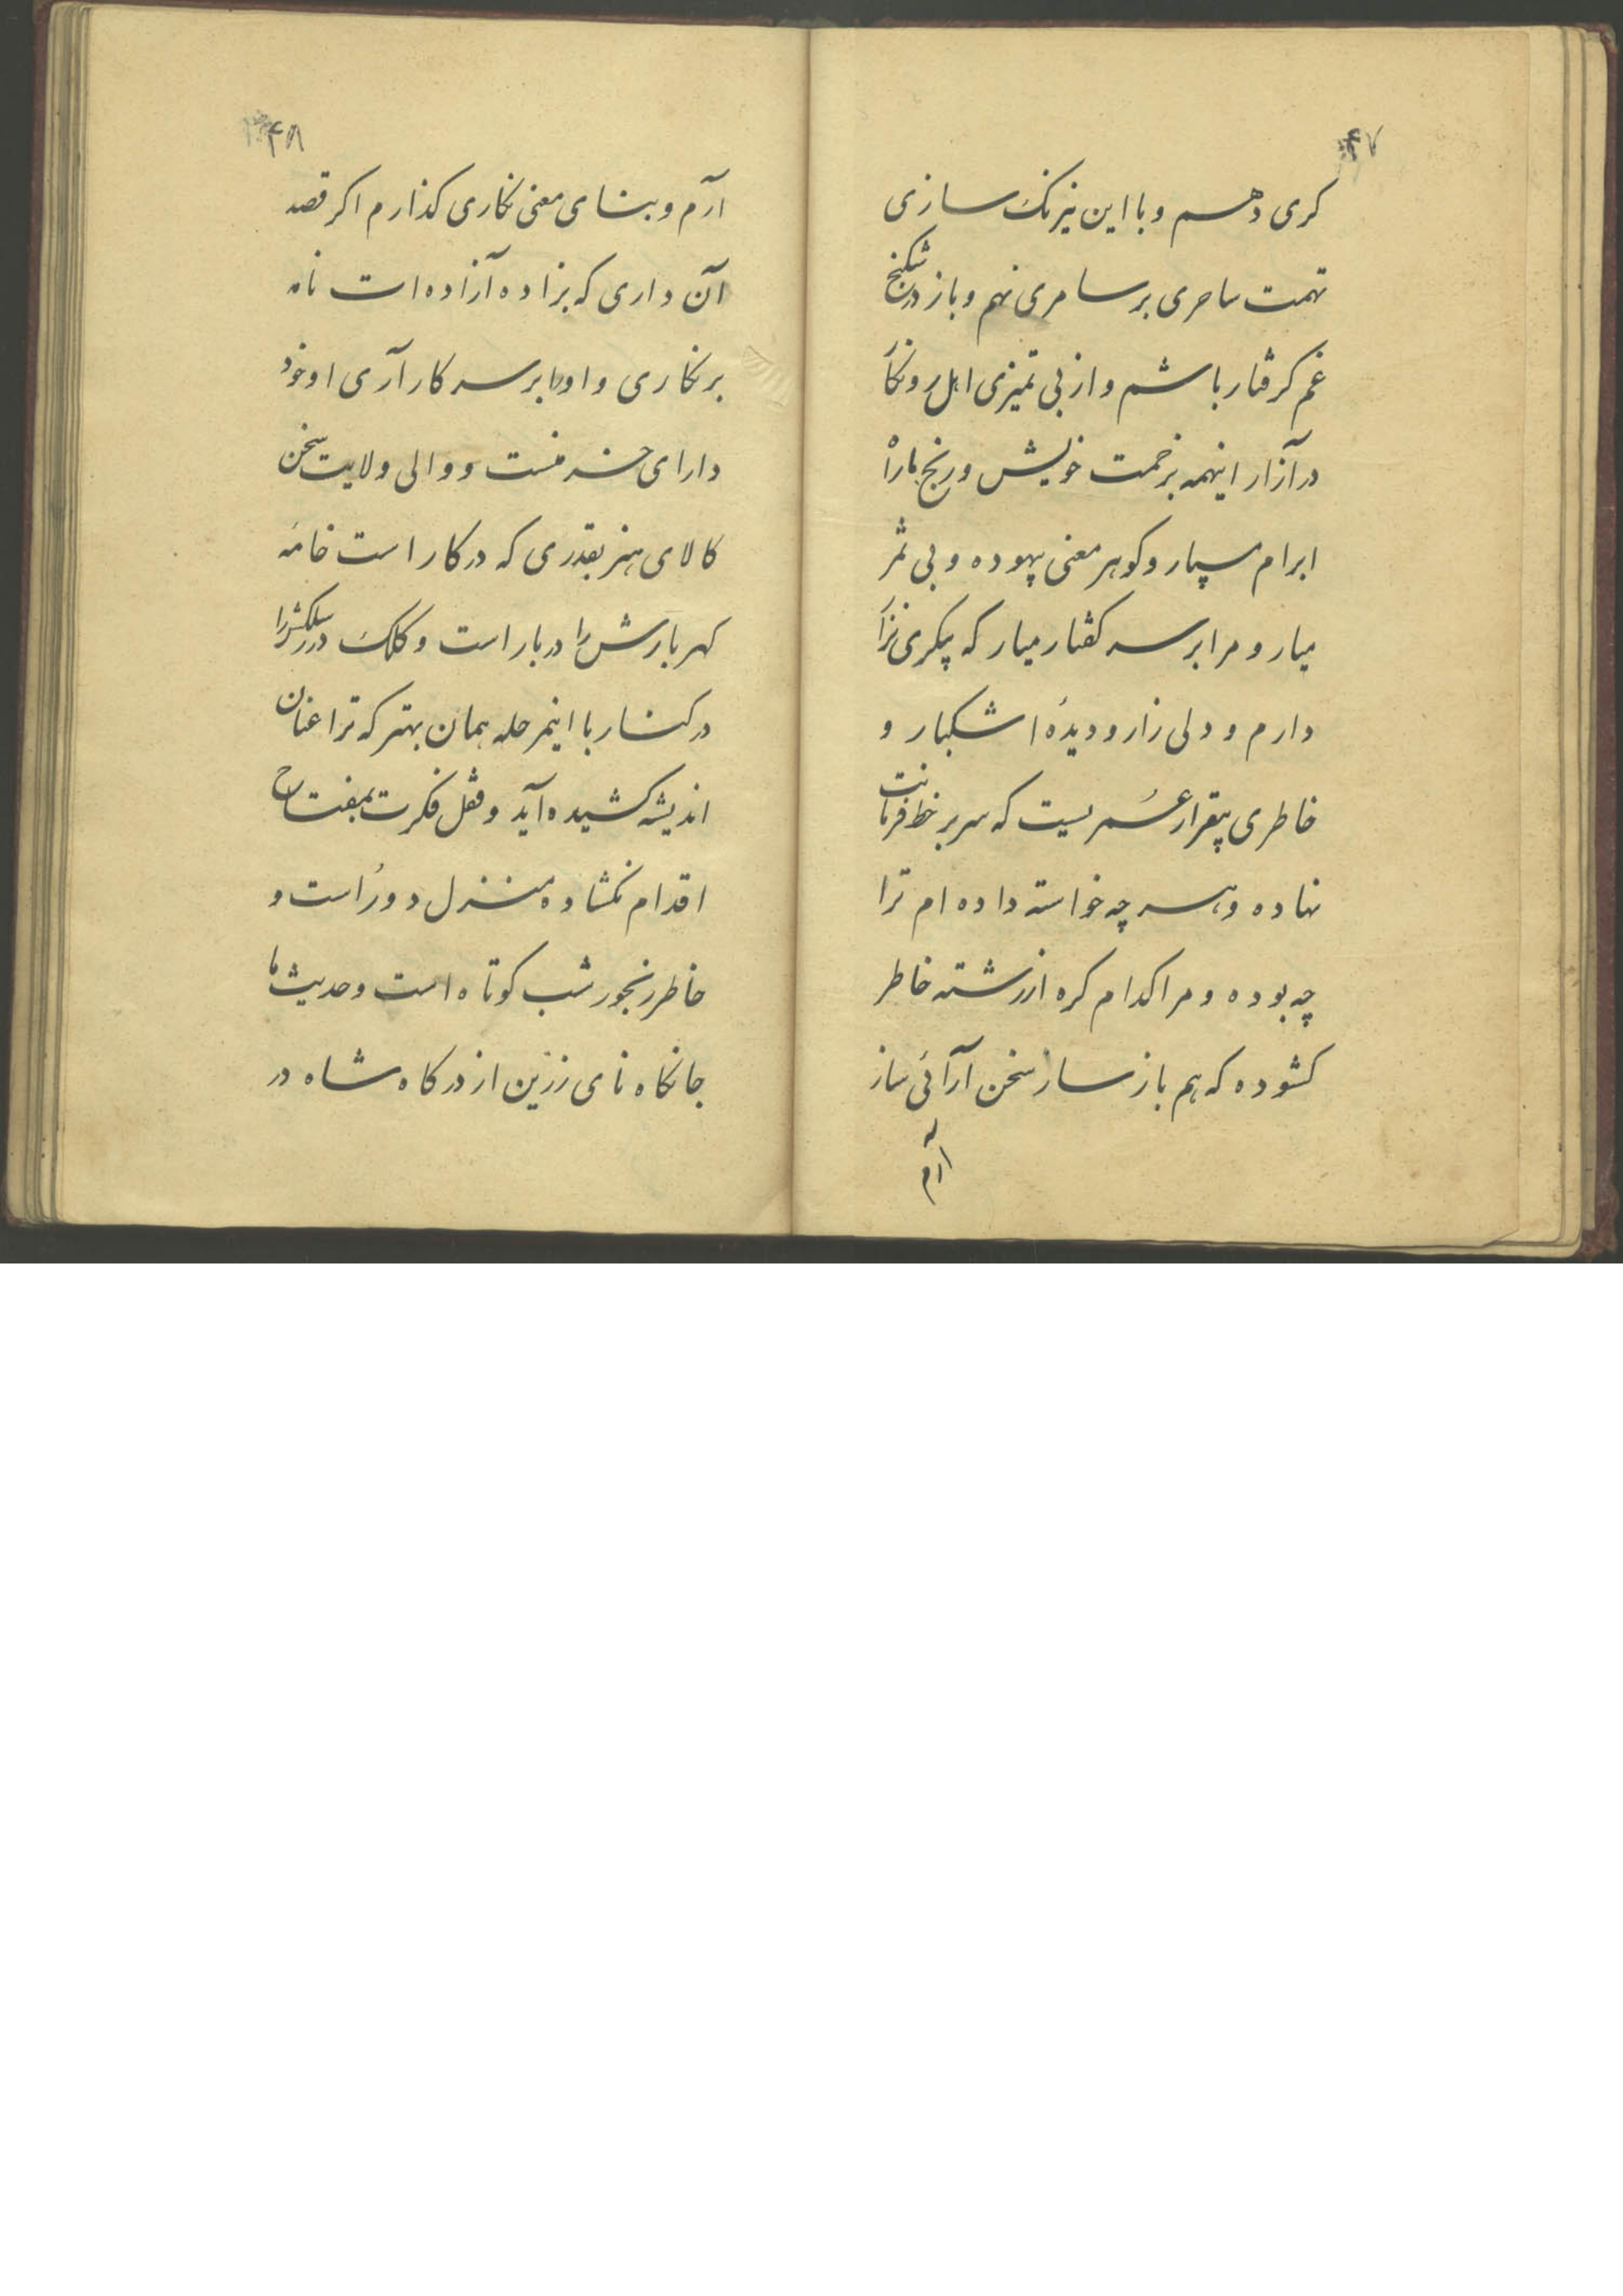 ۴۷
کری دهم و با این نیرنک سازی
تهمت ساحری بر سامری نهم و باز در شکنج
غم کرفتار باشم و از بی تمیزی اهل روزکار
در آزار اینهمه بزحمت خویش و رنج ما را
ابرام مسپار و کوهر معنی بیهوده و بی ثمر
میار و مرا بر سر کفتار میار که پیکری نزار
دارم و دلی زار و دیدۀ اشکبار و
خاطری بیقرار عمریست که سر بر خط فرمانت
نهاده و هر چه خواسته داده ام ترا
چه بوده و مرا کدام کره از رشته خاطر
کشوده که هم باز ساز سخن آرائی ساز
آرم
۴۸
آرم و بنای معنی نکاری کذارم اکر قصد
آن داری که بزاده آزاده است نامه
برنکاری و او را بر سر کار آری او خود
دارای هنر منست و والی ولایت سخن
کالای هنر بقدری که در کار است خامۀ
کهربارش را در بار است و کلک درر سلکش را
در کنار با اینمرحله همان بهتر که ترا عنان
اندیشه کشیده آید و قفل فکرت بمفتاح
اقدام نکشاده منزل دور است و
خاطر رنجور شب کوتاه است و حدیث ما
جانکاه نای زرین از درکاه شاه در